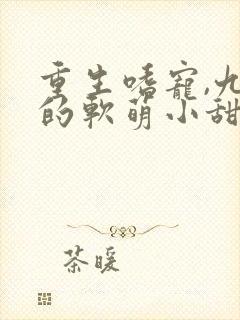 重生嗜寵,九
的軟萌小甜
茶暖